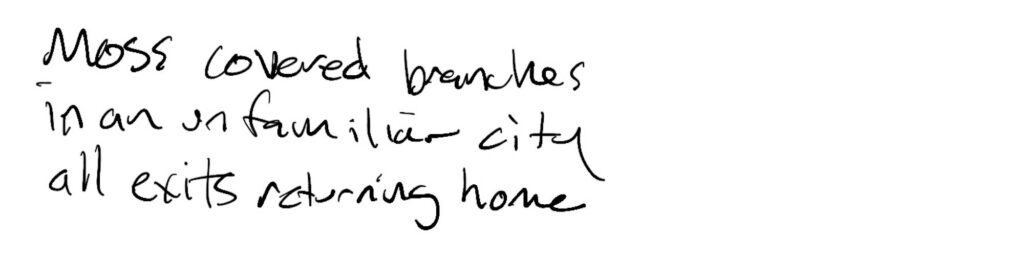 Moss covered branches
in an unfamiliar city
all exits returning home